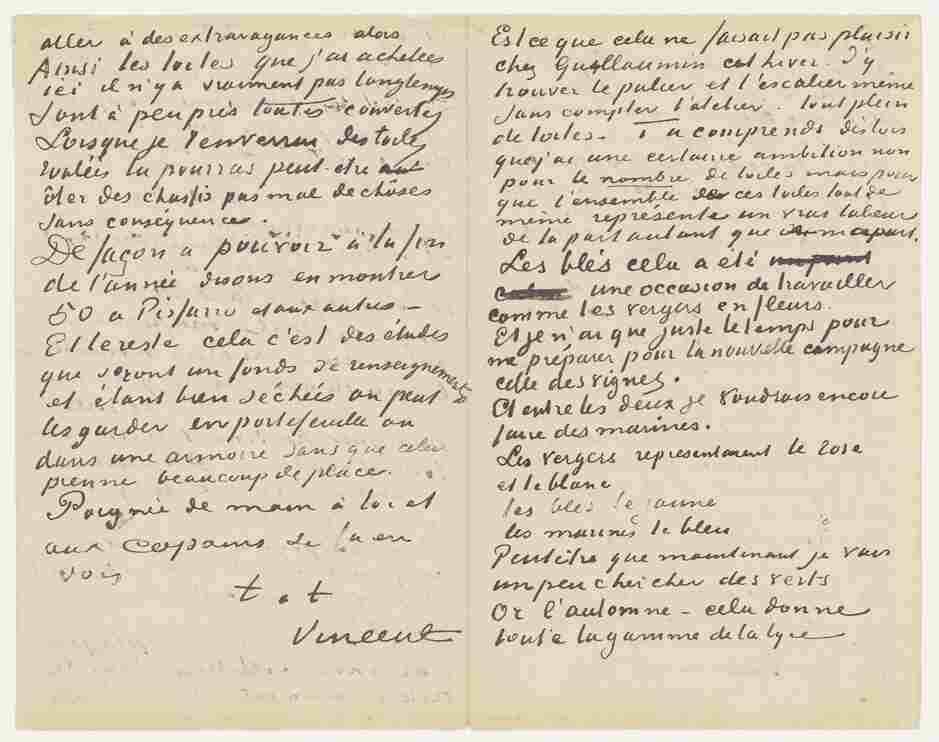 aller à des extravagances alors
Ainsi les toiles que j'ai achetées
ici il n'y a vraiment pas longtemps
sont à peu près toutes couvertes
Lorsque je t'enverrai des toiles
roulées tu pourras peut-etre
ôter des chassis pas mal de choses
sans conséquence.
De façon a pouvoir à la fin
de l'année disons en montrer
50 a Pissarro et aux autres –
Et le reste cela c'est des études
que seront un fonds de renseignements
et étant bien séchées on peut
les garder en portefeuille ou
dans une armoire sans que cela
prenne beaucoup de place.
Poignée de main à toi et
aux copains si tu en
vois
t. à t
Vincent
Est ce que cela ne faisait pas plaisir
chez Guillaumin cet hiver. d'y
trouver le palier et l'escalier même
sans compter l'atelier. tout plein
de toiles. Tu comprends dès lors
que j'ai une certaine ambition non
pour le nombre de toiles mais pour
que l'ensemble de ces toiles tout de
même représente un vrai labeur
de ta part autant que de ma part.
Les blés cela a eté
une occasion de travailler
comme les vergers en fleurs.
Et je n'ai que juste le temps pour
me préparer pour la nouvelle campagne
celle des vignes.
Et entre les deux je voudrais encore
faire des marines.
Les vergers representaient le rose
et le blanc
les blés le jaune
les marines le bleu
Peutêtre que maintenant je vais
un peu chercher des verts
Or l'automne – cela donne
toute la gamme de la lyre